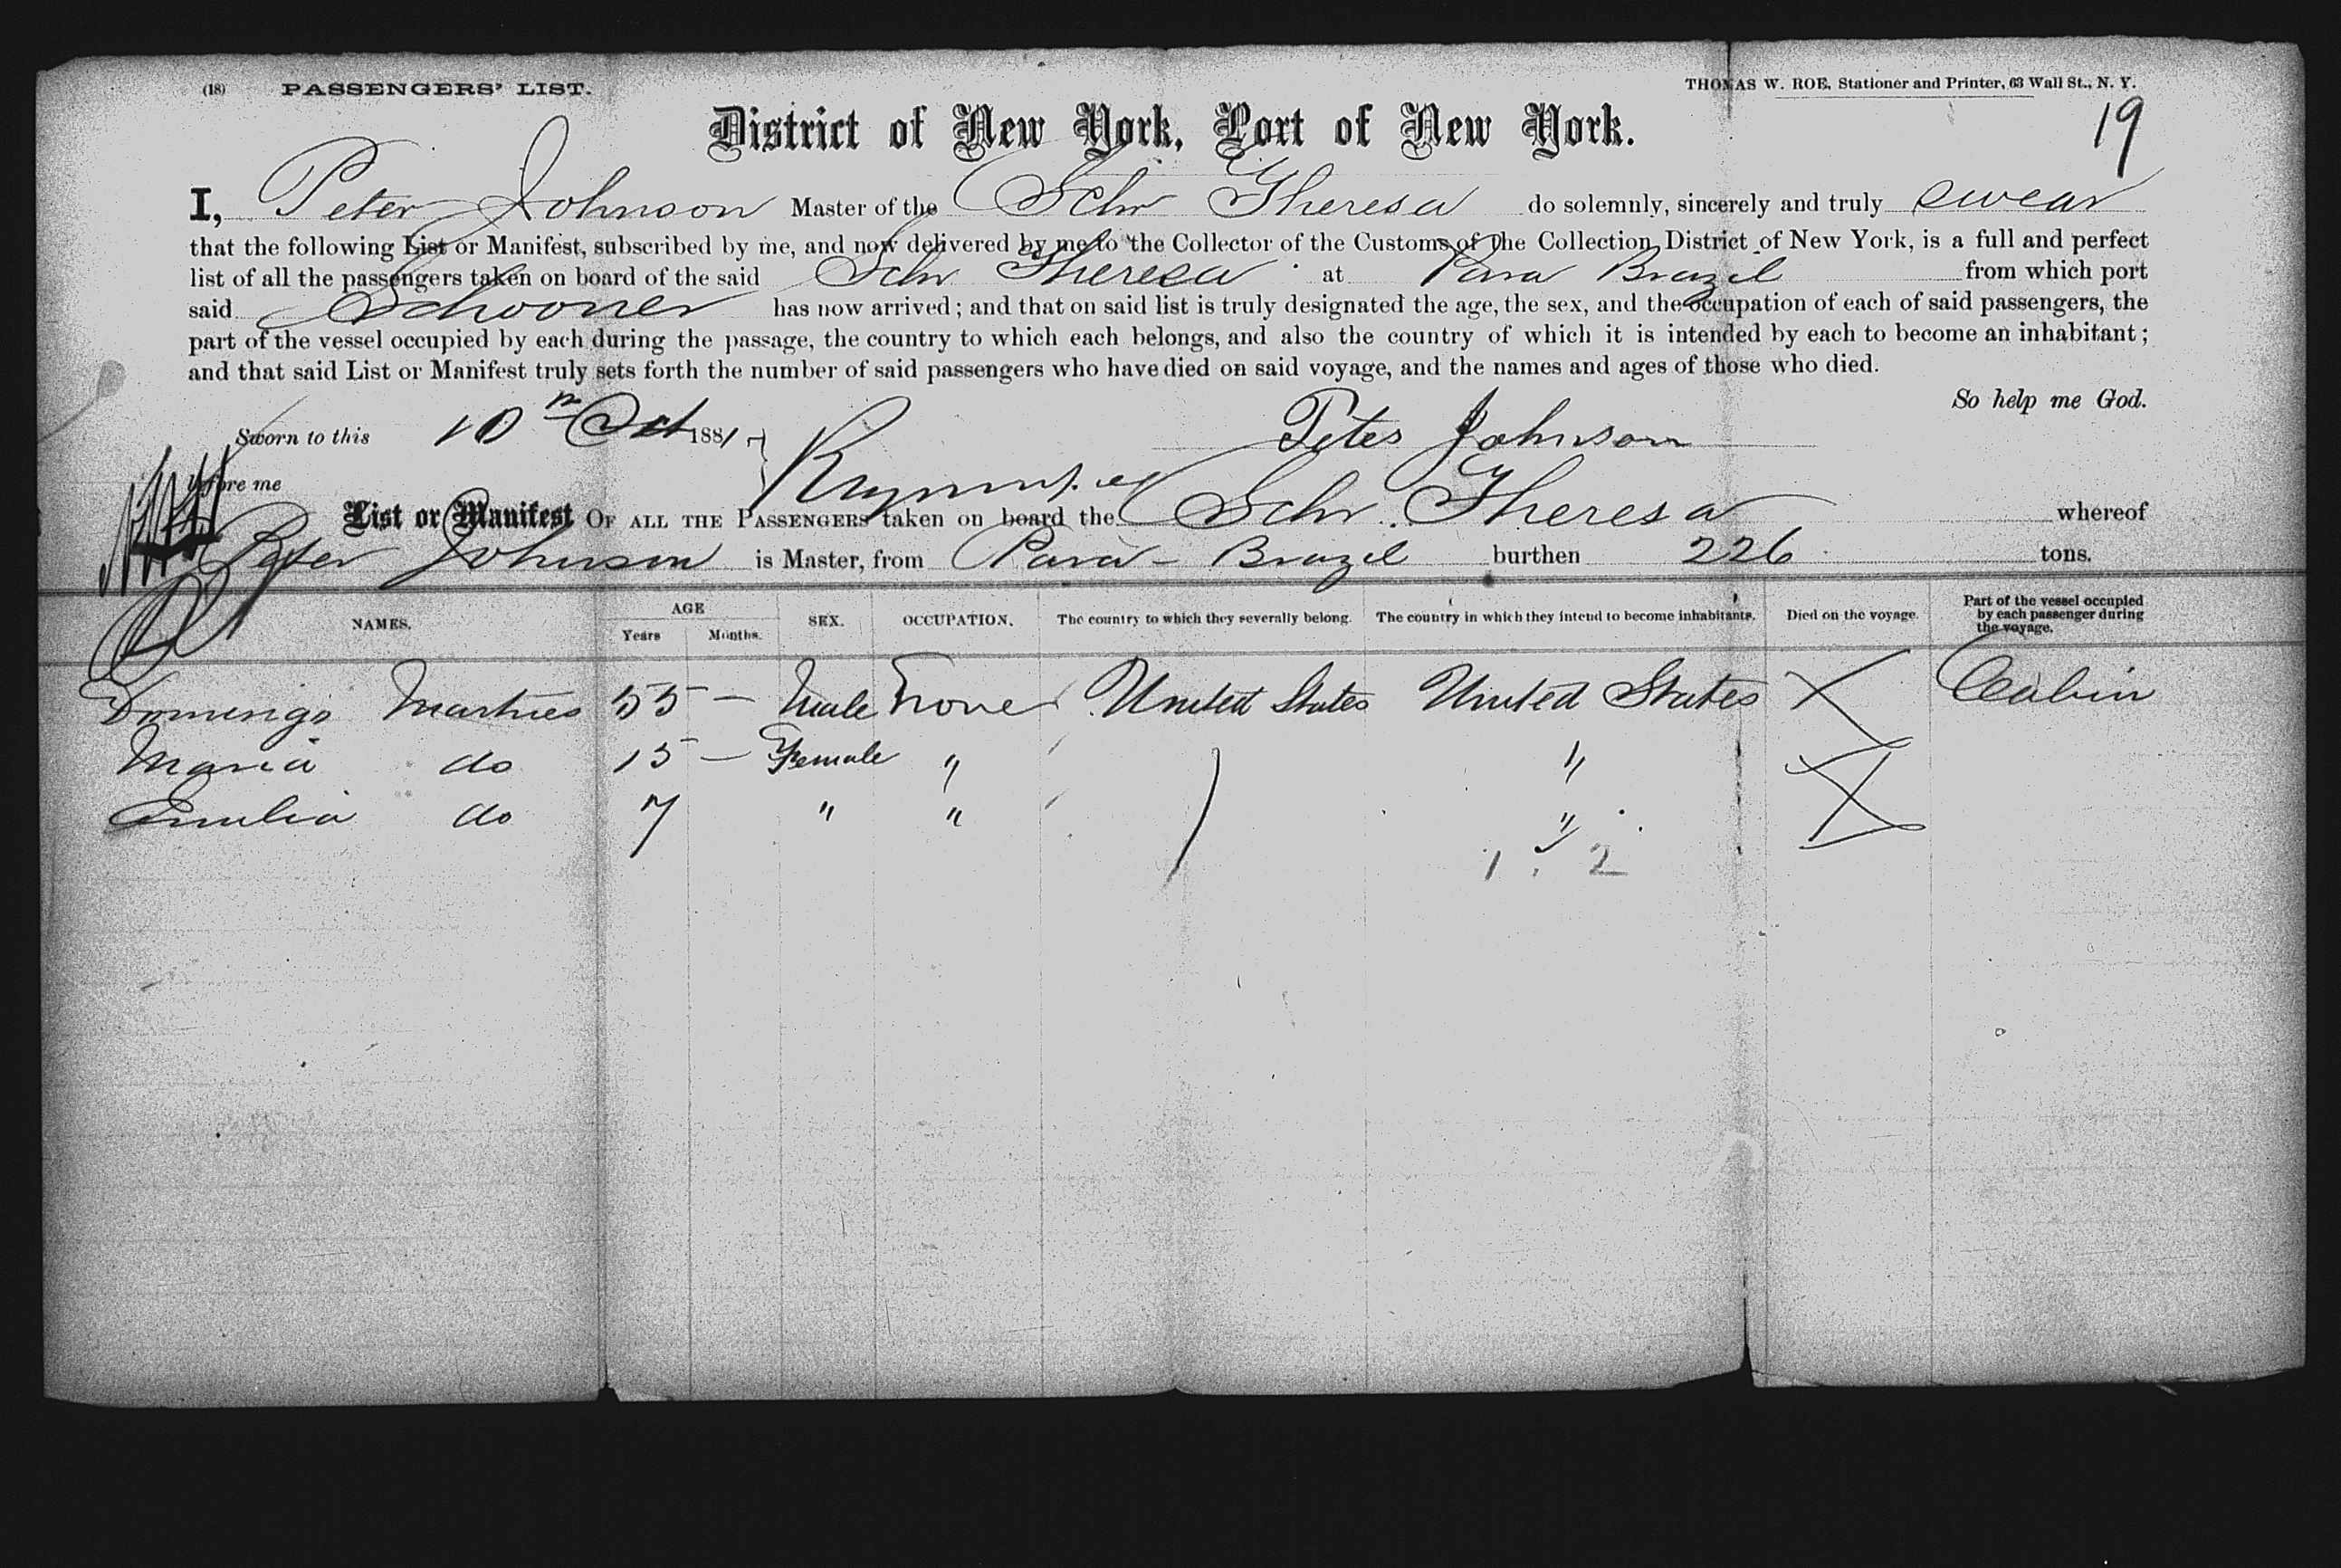 (18) PASSENGERS' LIST. THOMAS W. ROE, Stationer and Printer, 63 Wall St., N. Y.
19
District of New York, Port of New York.
I, Peter Johnson Master of the Schr Theresa do solemnly, sincerely and truly swear
that the following List or Manifest, subscribed by me, and now delivered by me to the Collector of the Customs of the Collection District of New York, is a full and perfect
list of all the passengers taken on board of the said Schr Theresa at Para Brazil from which port
said Schooner has now arrived; and that on said list is truly designated the age, the sex, and the occupation of each of said passengers, the
part of the vessel occupied by each during the passage, the country to which each belongs, and also the country of which it is intended by each to become an inhabitant;
and that said List or Manifest truly sets forth the number of said passengers who have died on said voyage, and the names and ages of those who died.
So help me God.
Sworn to this 10th Oct 1881 Peter Johnson
before me
List or Manifest OF ALL THE PASSENGERS taken on board the Schr. Theresa whereof
Peter Johnson is Master, from Para - Brazil burthen 226 tons.
NAMES. AGE Years Months. SEX. OCCUPATION. The country to which they severally belong. The country in which they intend to become inhabitants. Died on the voyage. Part of the vessel occupied by each passenger during the voyage.
Domingo Martines 55 — Male None United States United States X Cabin
Maria do 15 — Female " "
Emilia do 7 " " "
1. 2